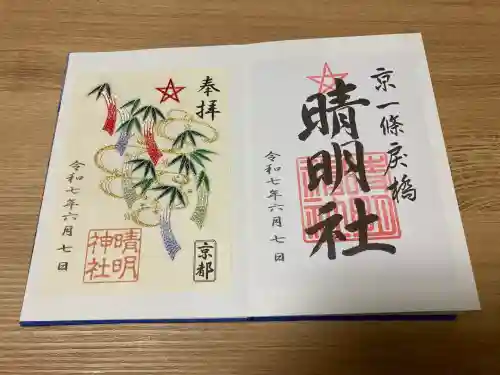 奉拝
令和七年六月七日
晴明
神社
京都
京一條戻橋
晴明社
令和七年六月七日